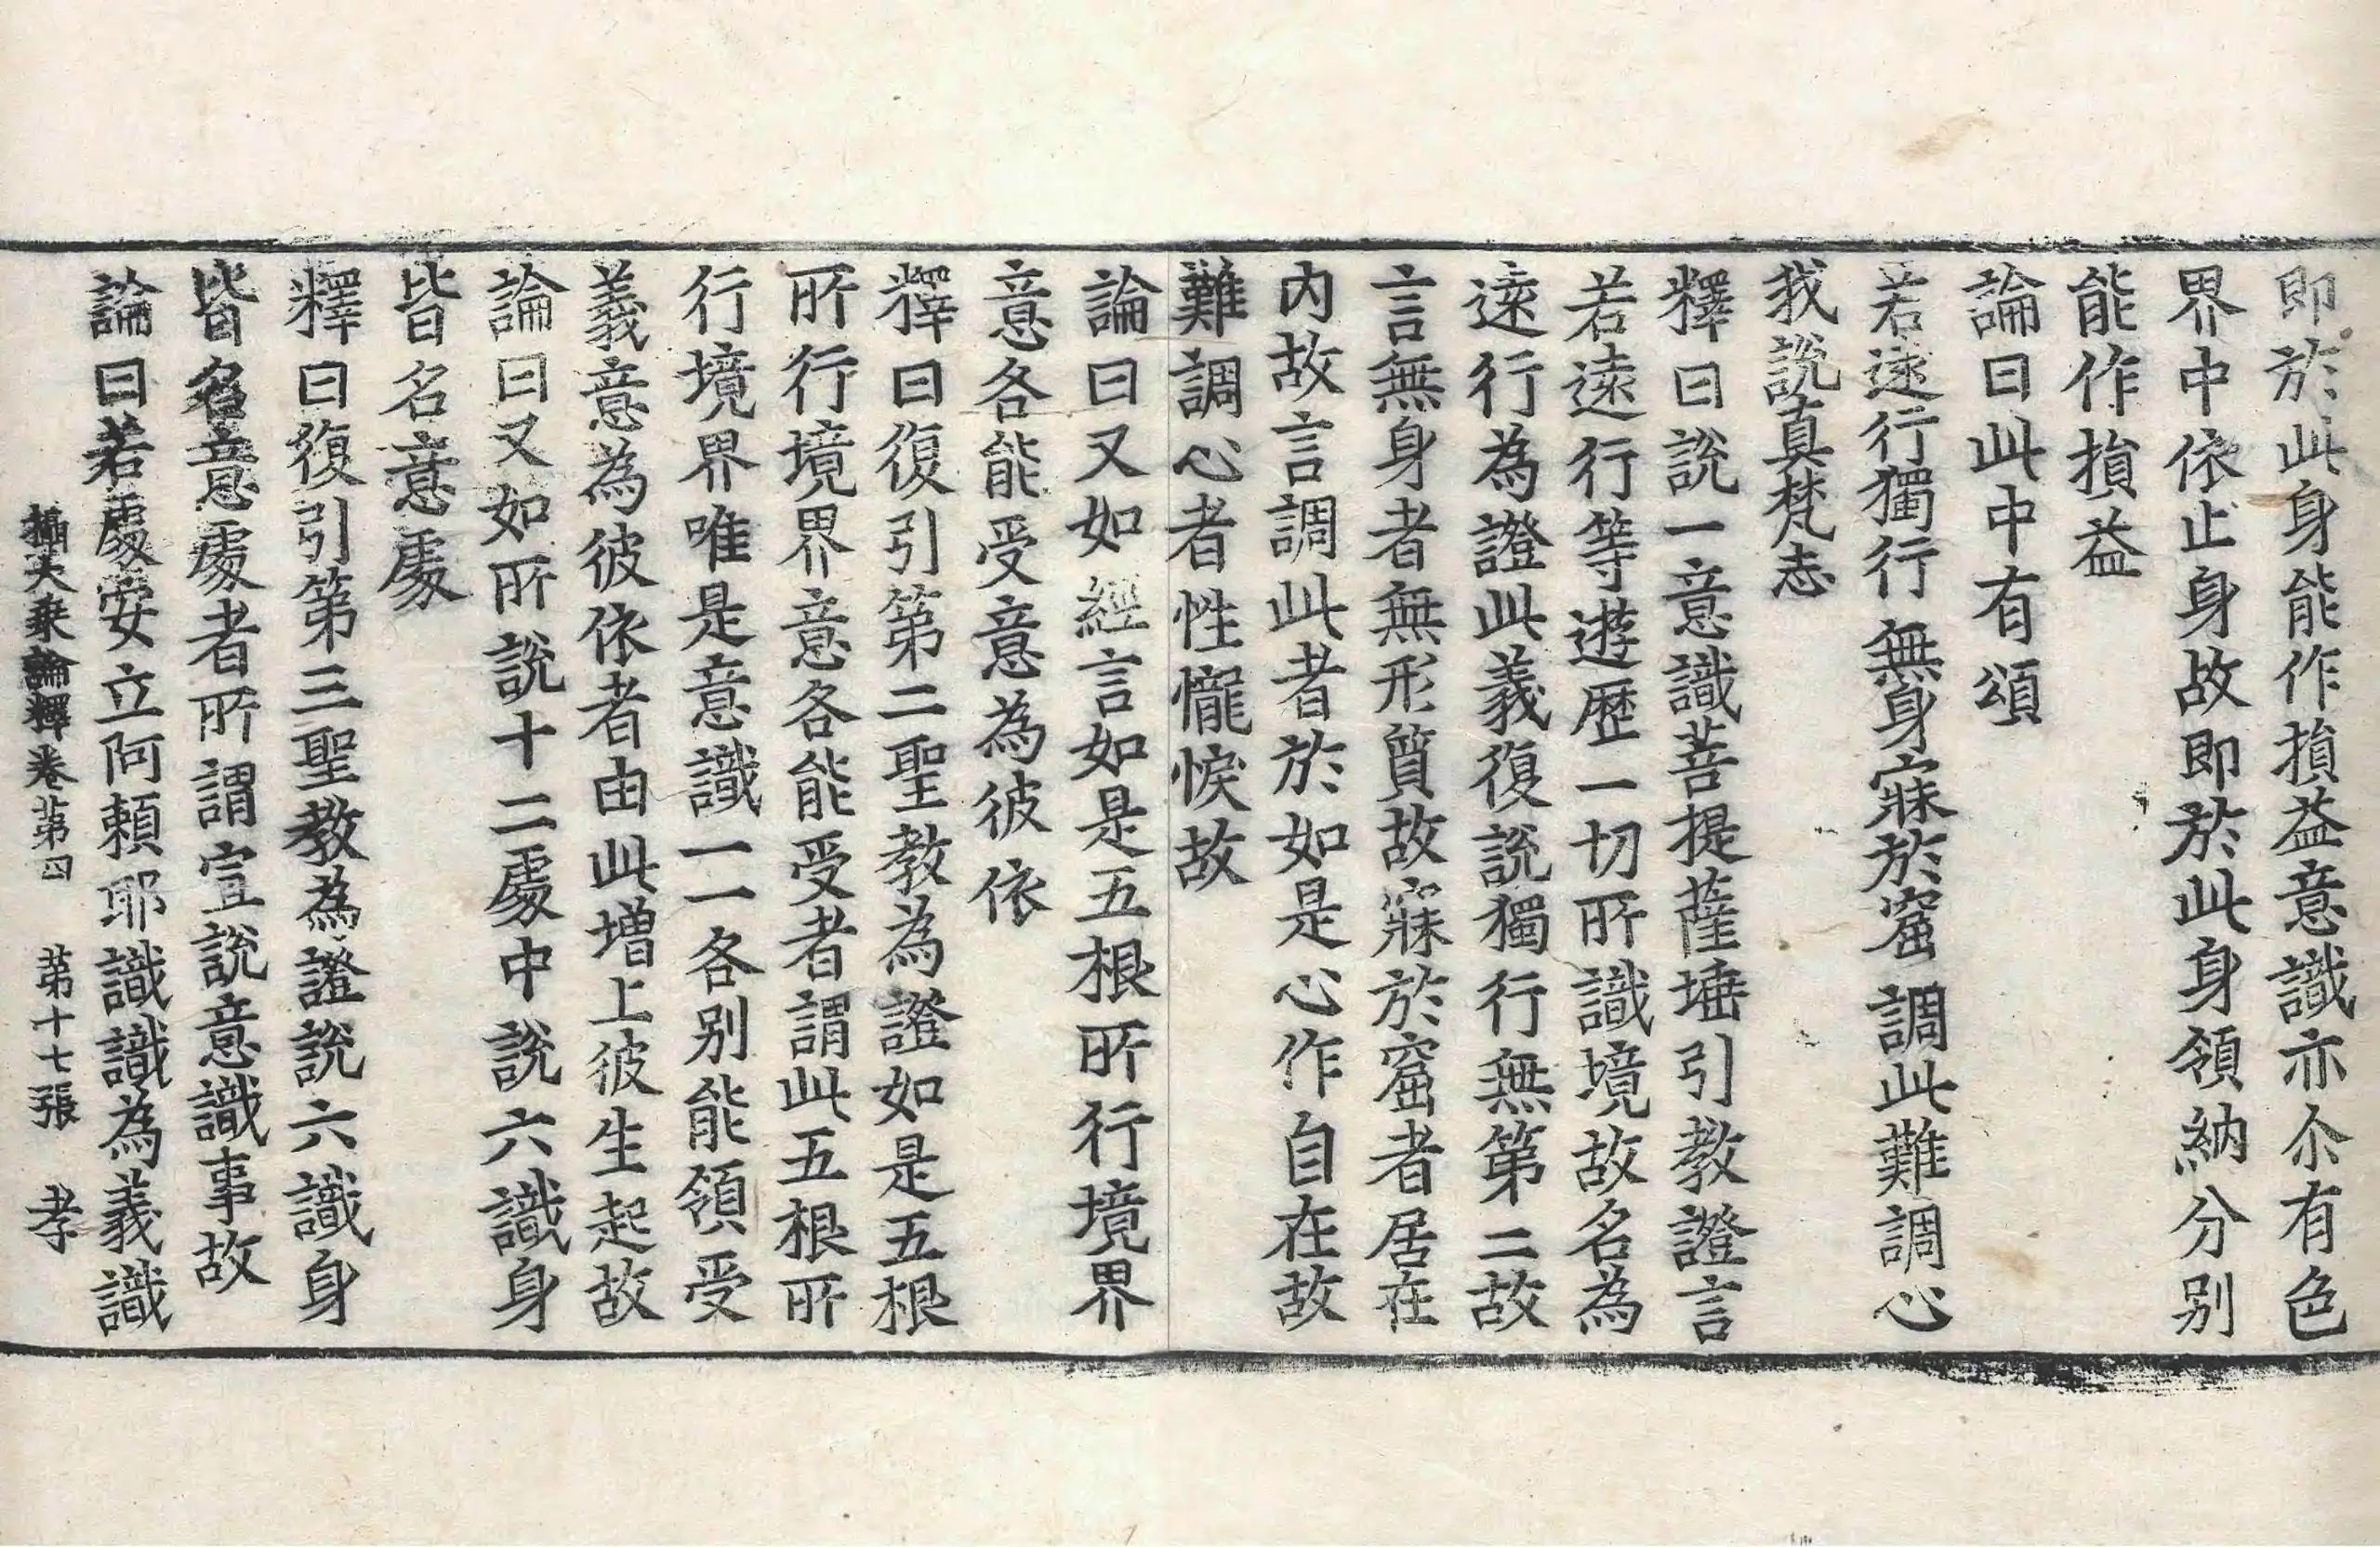 即於此身能作損益意識亦尒有色
界中依止身故即於此身領納分别
能作損益
論曰此中有頌
若遠行獨行 無身寐於窟 調此難調心
我說真梵志
釋曰說一意識菩提薩埵引教證言
若遠行等遊歷一切所識境故名為
遠行為證此義復說獨行無第二故
言無身者無形質故寐於窟者居在
内故言調此者於如是心作自在故
難調心者性㦬悷故
論曰又如經言如是五根所行境界
意各能受意為彼依
釋曰復引第二聖教為證如是五根
所行境界意各能受者謂此五根所
行境界唯是意識一一各别能領受
義意為彼依者由此增上彼生起故
論曰又如所說十二處中說六識身
皆名意處
釋曰復引第三聖教為證說六識身
皆名意處者所謂宣說意識事故
論曰若處安立阿賴耶識識為義識
攝大乘論釋卷第四 第十七張 孝